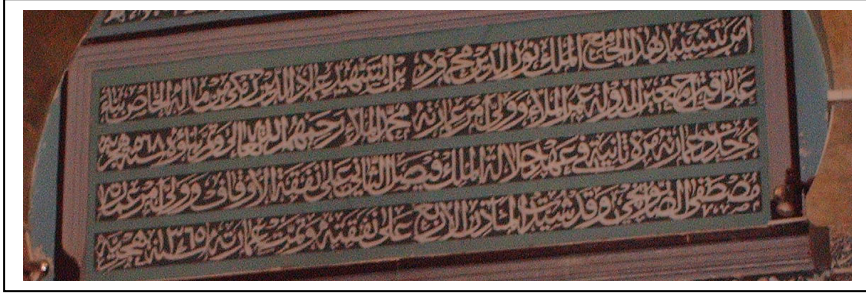 أمر بتشييد هذا الجامع الملك نور الدين محمود بن الشهيد عماد الدين زنكي من ماله الخاص بناه
على قبر جمعة الدولة عمر الملاء وولي أمر عمارته محمد الملاء رحمهما الله تعالى وفرغ بناؤه سنة ٥٦٨ هجرية
وجدد عمارته مرة ثانية في عهد جلالة الملك فيصل الثاني على نفقة الأوقاف وولي أمر عمارته
مصطفى الصابونجي وقد شيد المآذن الأربع على نفقته وتمت عمارته سنة ١٣٦٥ هجرية